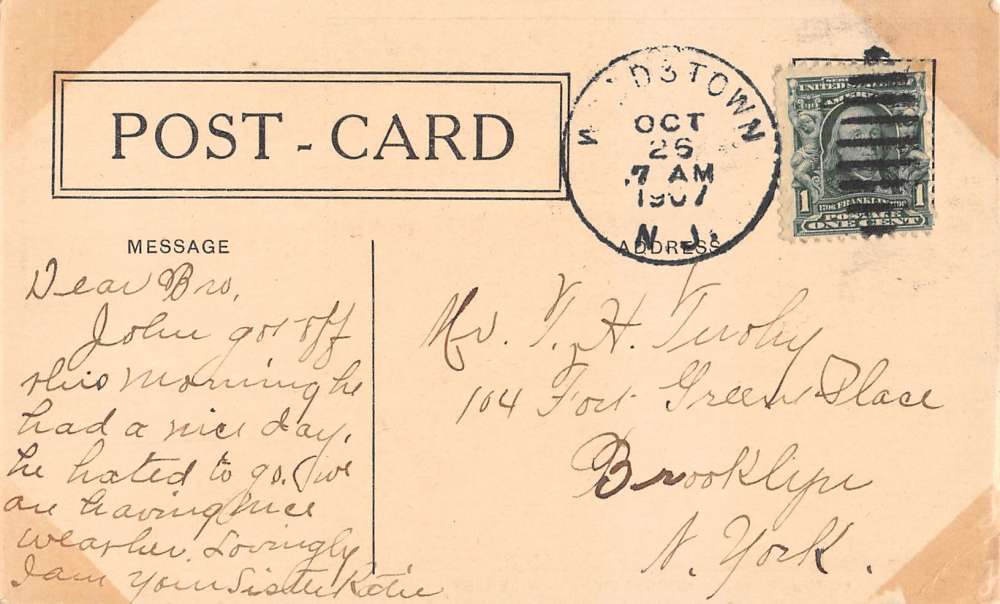 POST - CARD
W DSTOWN
OCT
26
7 AM
1907
N.J.
UNITED STATES OF
AMERICA
1 1706 FRANKLIN 1790 1
POSTAGE
ONE CENT
MESSAGE
Dear Bro,
John got off
this morning he
had a nice day,
he hated to go. we
are having nice
weather. Lovingly
I am your Sister Katie
ADDRESS
Mr. T. H. Tuohy
104 Fort Greene Place
Brooklyn
N. York.